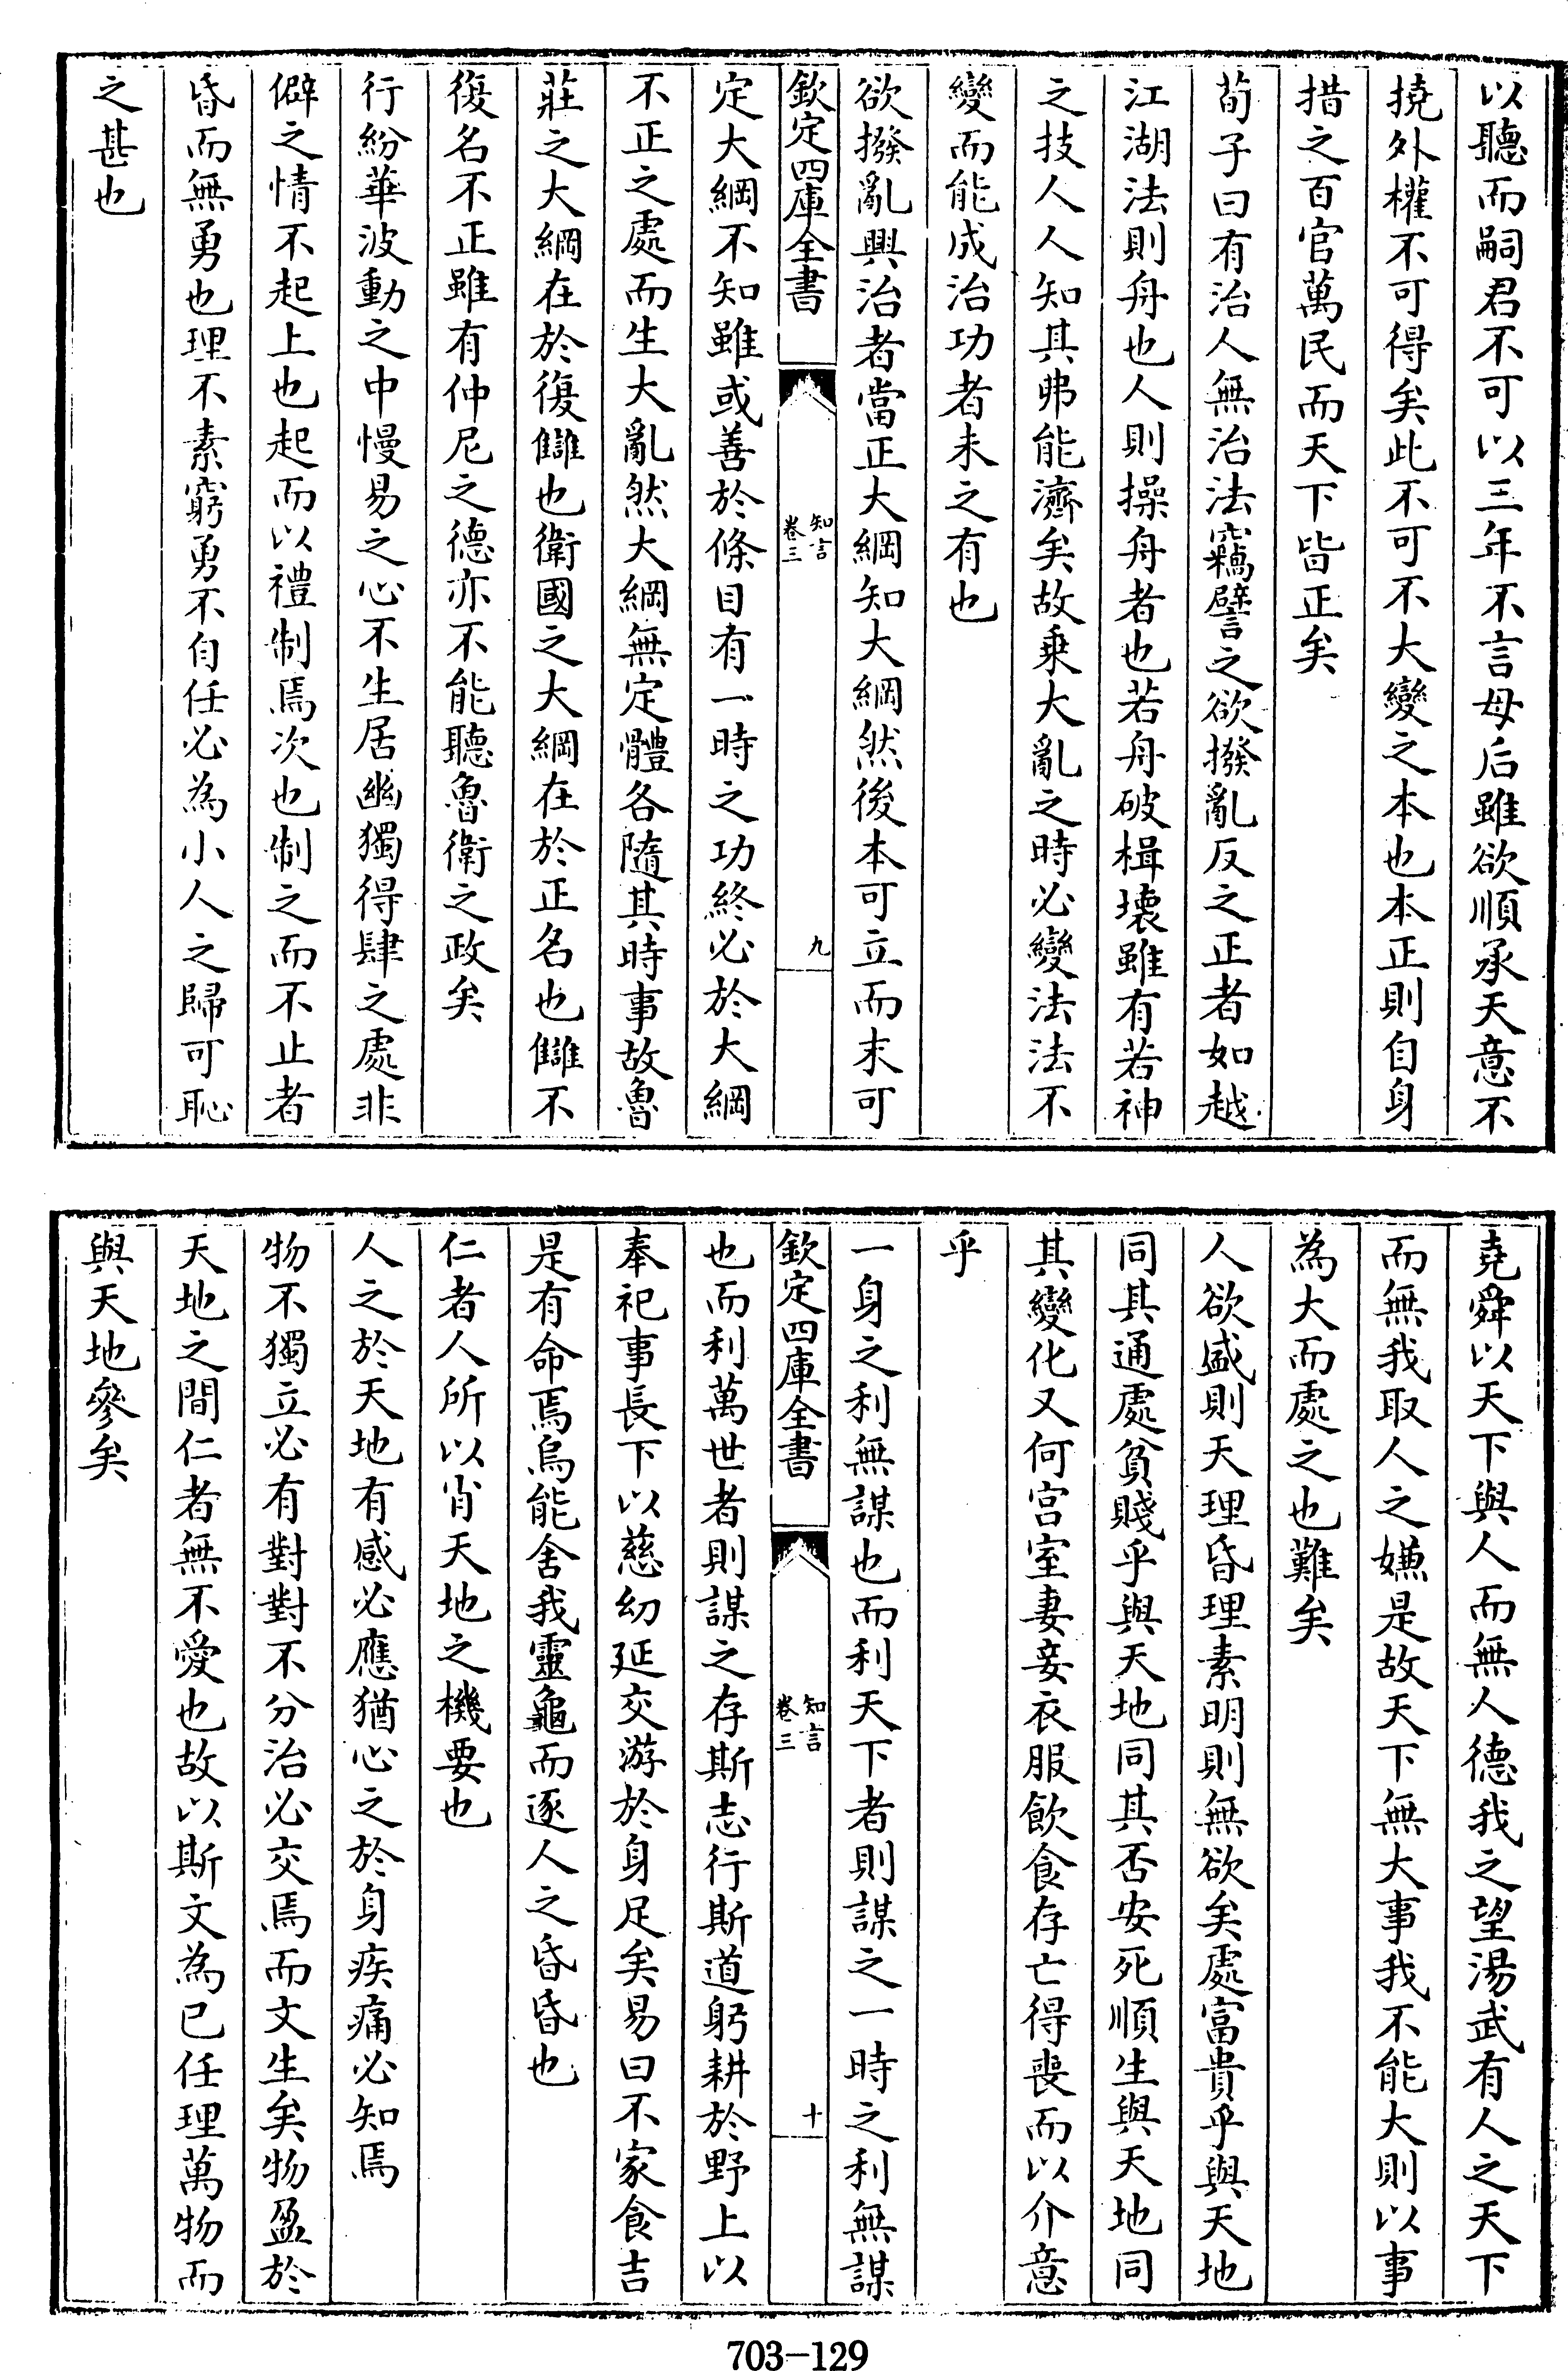 以聽而嗣君不可以三年不言母后雖欲順承天意不
撓外權不可得矣此不可不大變之本也本正則自身
措之百官萬民而天下皆正矣
荀子曰有治人無治法竊譬之欲撥亂反之正者如越
江湖法則舟也人則操舟者也若舟破楫壞雖有若神
之技人人知其弗能濟矣故乘大亂之時必變法法不
變而能成治功者未之有也
欲撥亂興治者當正大綱知大綱然後本可立而末可
欽定四庫全書
知言
卷三
九
定大綱不知雖或善於條目有一時之功終必於大綱
不正之處而生大亂然大綱無定體各隨其時事故魯
莊之大綱在於復讎也衛國之大綱在於正名也讎不
復名不正雖有仲尼之德亦不能聽魯衛之政矣
行紛華波動之中慢易之心不生居幽獨得肆之處非
僻之情不起上也起而以禮制焉次也制之而不止者
昏而無勇也理不素窮勇不自任必為小人之歸可恥
之甚也
堯舜以天下與人而無人德我之望湯武有人之天下
而無我取人之嫌是故天下無大事我不能大則以事
為大而處之也難矣
人欲盛則天理昏理素明則無欲矣處富貴乎與天地
同其通處貧賤乎與天地同其否安死順生與天地同
其變化又何宮室妻妾衣服飲食存亡得喪而以介意
乎
一身之利無謀也而利天下者則謀之一時之利無謀
欽定四庫全書
知言
卷三
十
也而利萬世者則謀之存斯志行斯道躬耕於野上以
奉祀事長下以慈幼延交游於身足矣易曰不家食吉
是有命焉烏能舍我靈龜而逐人之昏昏也
仁者人所以肖天地之機要也
人之於天地有感必應猶心之於身疾痛必知焉
物不獨立必有對對不分治必交焉而文生矣物盈於
天地之間仁者無不愛也故以斯文為已任理萬物而
與天地參矣
703-129